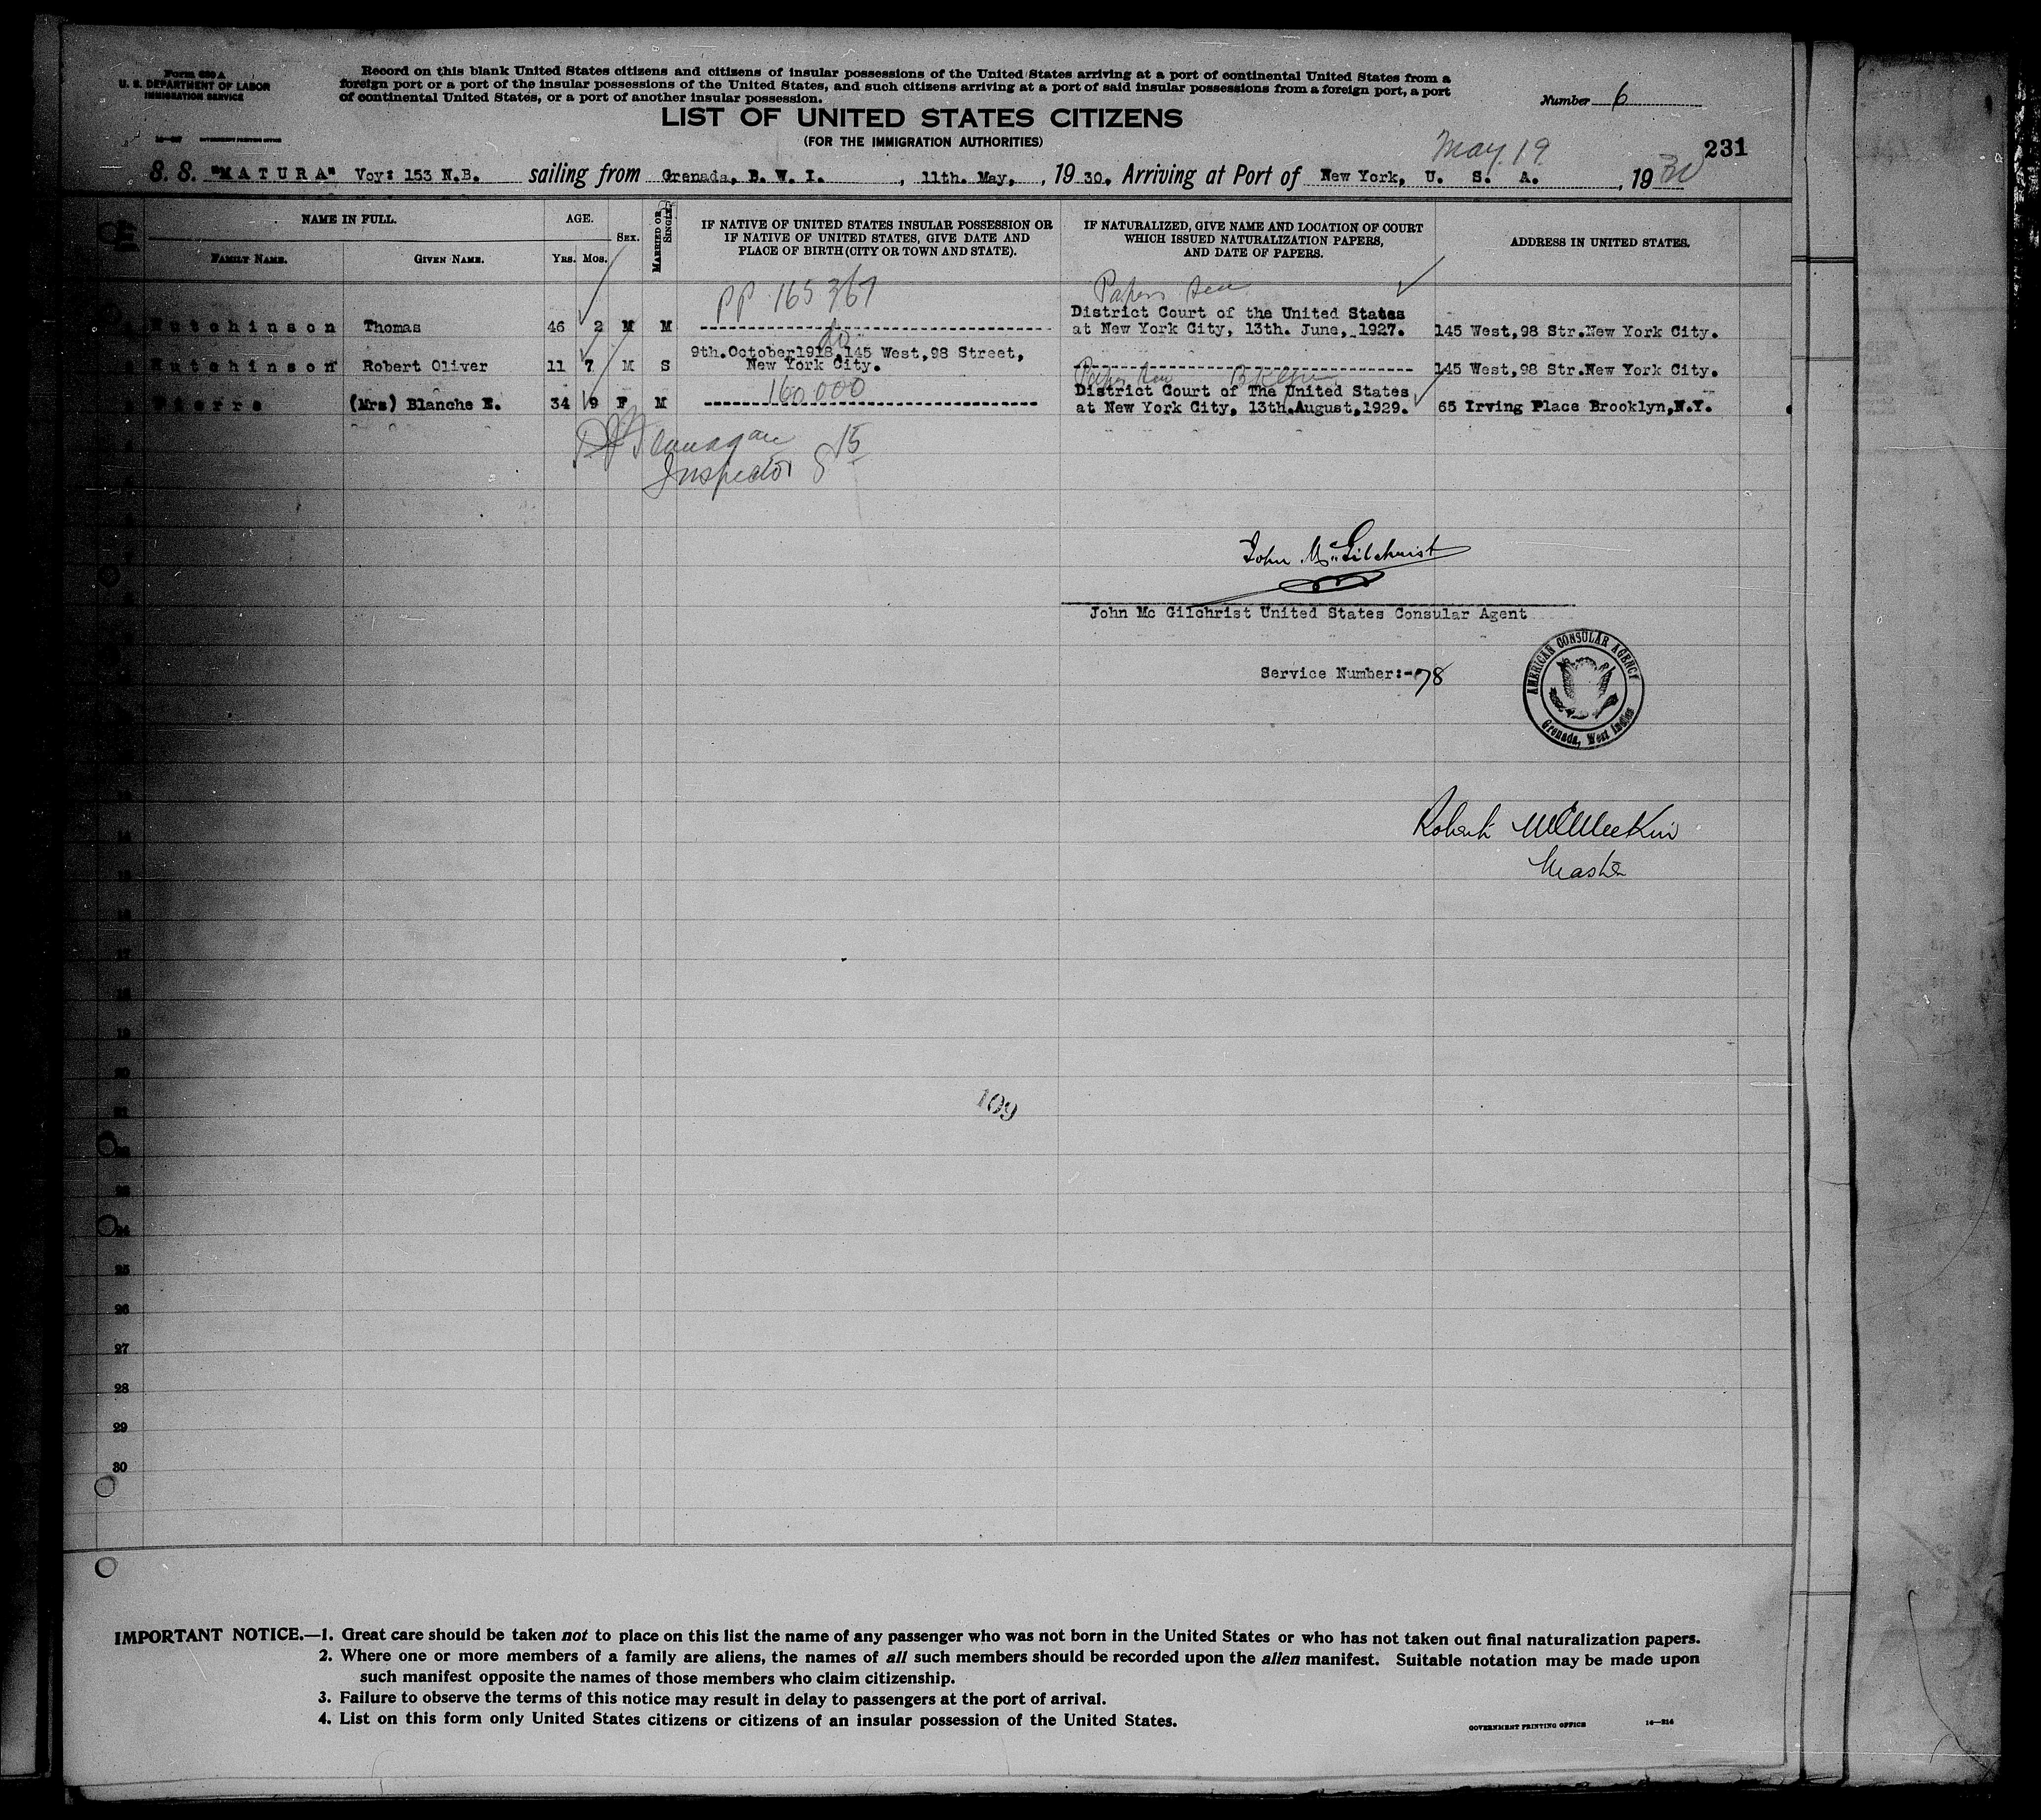 Form 630 A
U. S. DEPARTMENT OF LABOR
IMMIGRATION SERVICE
Record on this blank United States citizens and citizens of insular possessions of the United States arriving at a port of continental United States from a
foreign port or a port of the insular possessions of the United States, and such citizens arriving at a port of said insular possessions from a foreign port, a port
of continental United States, or a port of another insular possession.
Number 6
LIST OF UNITED STATES CITIZENS
(FOR THE IMMIGRATION AUTHORITIES)
GOVERNMENT PRINTING OFFICE
May 19
231
S. S. "MATURA" Voy: 153 N.B. sailing from Grenada, B. W. I. , 11th. May, , 19 30, Arriving at Port of New York, U. S. A. , 1930
NAME IN FULL.
AGE.
SEX.
MARRIED OR SINGLE.
IF NATIVE OF UNITED STATES INSULAR POSSESSION OR
IF NATIVE OF UNITED STATES, GIVE DATE AND
PLACE OF BIRTH (CITY OR TOWN AND STATE).
IF NATURALIZED, GIVE NAME AND LOCATION OF COURT
WHICH ISSUED NATURALIZATION PAPERS,
AND DATE OF PAPERS.
ADDRESS IN UNITED STATES.
FAMILY NAME.
GIVEN NAME.
YRS. MOS.
PP 165367
Papers seen
District Court of the United States
Hutchinson Thomas 46 2 M M at New York City, 13th. June, 1927. 145 West,98 Str.New York City.
do
9th.October1918,145 West,98 Street,
Hutchinson Robert Oliver 11 7 M S New York City. 145 West,98 Str.New York City.
160000
Papers seen Bklyn
District Court of The United States
Pierre (Mrs) Blanche E. 34 9 F M at New York City, 13th.August,1929. 65 Irving Place Brooklyn,N.Y.
Flannagan
Inspector 8 15
John McGilchrist
John Mc Gilchrist United States Consular Agent
Service Number:-78
AMERICAN CONSULAR AGENCY
Grenada, West Indies
Robert McMeekin
Master
14
15
16
17
18
19
20
21
109
22
23
24
25
26
27
28
29
30
IMPORTANT NOTICE.—1. Great care should be taken not to place on this list the name of any passenger who was not born in the United States or who has not taken out final naturalization papers.
2. Where one or more members of a family are aliens, the names of all such members should be recorded upon the alien manifest. Suitable notation may be made upon
such manifest opposite the names of those members who claim citizenship.
3. Failure to observe the terms of this notice may result in delay to passengers at the port of arrival.
4. List on this form only United States citizens or citizens of an insular possession of the United States.
GOVERNMENT PRINTING OFFICE 14—314